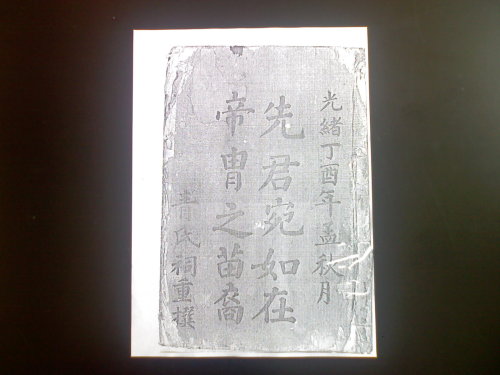 光緒丁酉年孟秋月
先君宛如在
帝胄之苗裔
氏祠重撰